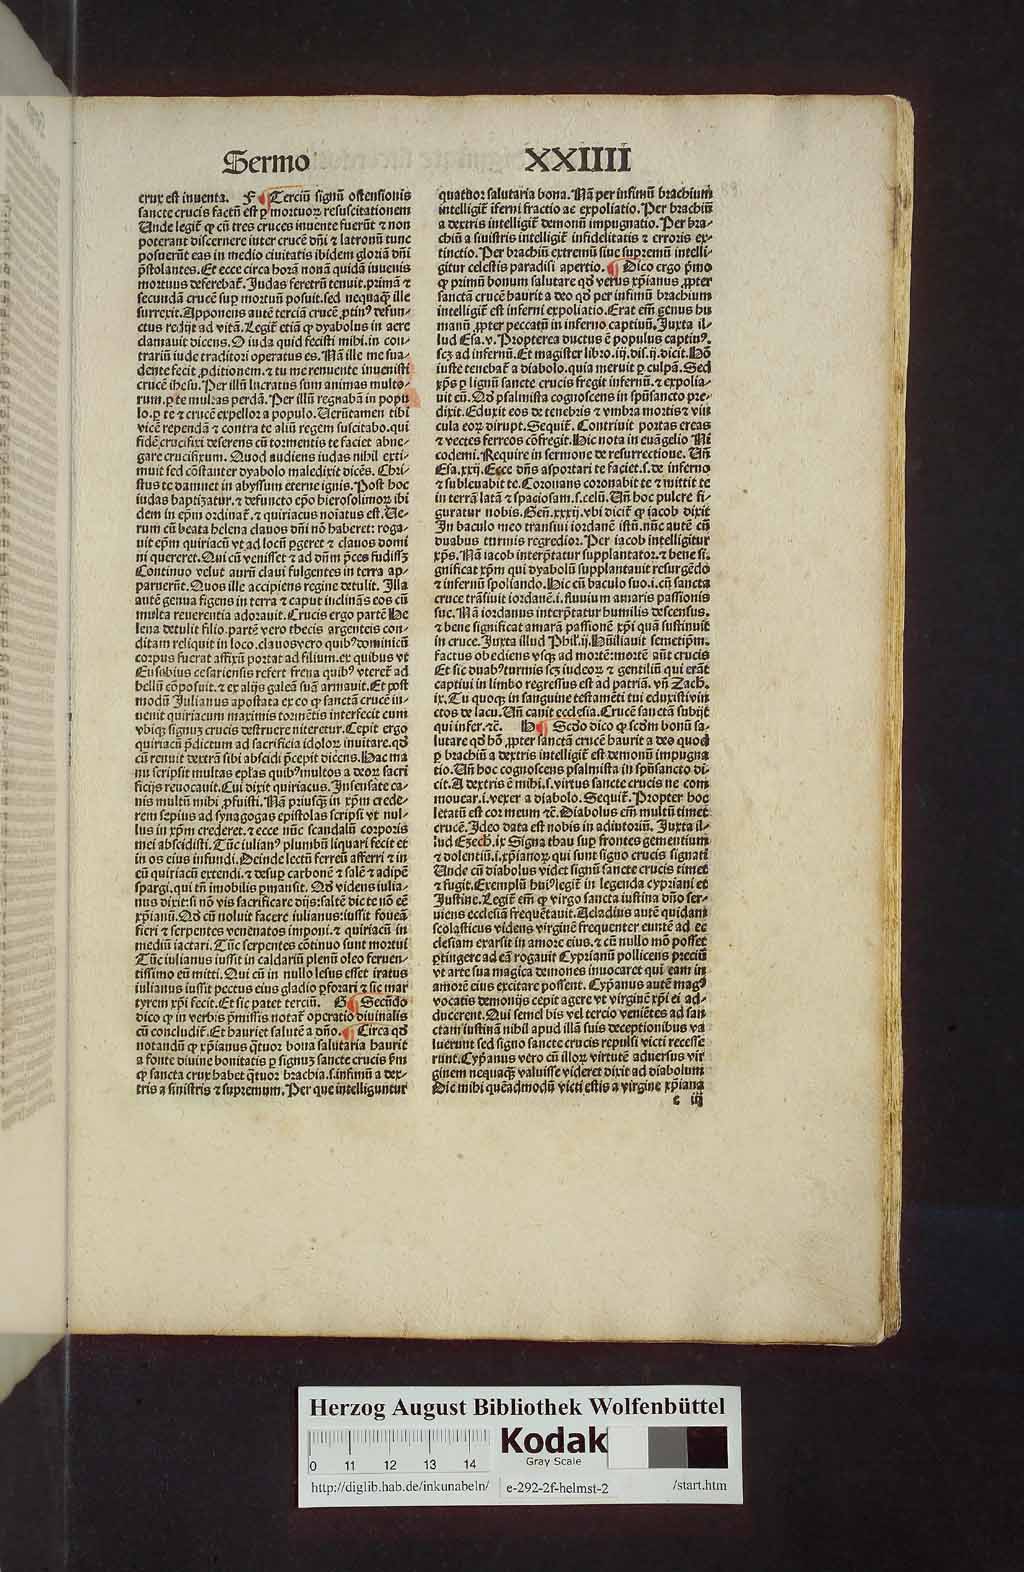 Sermo XXIIII
crux est inuenta. F ¶ Terciū signū ostensionis
sancte crucis factū est ꝑ mortuoꝝ resuscitationem
Unde legit̄ ꝙ cū tres cruces inuente fuerūt ⁊ non
poterant discernere inter crucē dn̄i ⁊ latronū tunc
posuerūt eas in medio ciuitatis ibidem gloriā dn̄i
p̄stolantes. Et ecce circa horā nonā quidā iuuenis
mortuus deferebat̄. Judas feretrū tenuit. primā ⁊
secundā crucē sup mortuū posuit. sed nequaꝙ̄ ille
surrexit. Apponens autē terciā crucē ꝓtinꝰ defun-
ctus redijt ad vitā. Legit̄ etiā ꝙ dyabolus in aere
clamauit dicens. O iuda quid fecisti mihi. in con-
trariū iude traditori operatus es. Nā ille me sua-
dente fecit ꝓditionem. ⁊ tu me renuente inuenisti
crucē ihesu. Per illū lucratus sum animas multo-
rum. ꝑ te multas perdā. Per illū regnabā in popu
lo. ꝑ te ⁊ crucē expellor a populo. Uerūtamen tibi
vicē rependā ⁊ contra te aliū regem suscitabo. qui
fidē crucifixi deserens cū tormentis te faciet abne-
gare crucifixum. Quod audiens iudas nihil exti-
muit sed cōstanter dyabolo maledixit dicēs. Chri-
stus te damnet in abyssum eterne ignis. Post hoc
iudas baptizatur. ⁊ defuncto ep̄o hierosolimoꝝ ibi
dem in ep̄m ordinat̄. ⁊ quiriacus noīatus est. Ue-
rum cū beata helena clauos dn̄i nō haberet: roga-
uit ep̄m quiriacū vt ad locū ꝑgeret ⁊ clauos domi
ni quereret. Qui cū venisset ⁊ ad dn̄m p̄ces fudissꝫ
Continuo velut aurū claui fulgentes in terra ap-
paruerūt. Quos ille accipiens regine detulit. Illa
autē genua figens in terra ⁊ caput inclināns eos cū
multa reuerentia adorauit. Crucis ergo partē He
lena detulit filio. partē vero thecis argenteis con-
ditam reliquit in loco. clauos vero quibꝰ dominicū
corpus fuerat affixū portat ad filium. ex quibus vt
Eusebius cesariensis refert frena quibꝰ vteret̄ ad
bellū cōposuit. ⁊ ex alijs galeā suā armauit. Et post
modū Julianus apostata ex eo ꝙ sanctā crucē in-
uenit quiriacum maximis tormētis interfecit eum
vbiqꝫ signuꝫ crucis destruere niteretur. Cepit ergo
quiriacū p̄dictum ad sacrificia idoloꝝ inuitare. qd̄
cū renuit dexterā sibi abscidi p̄cepit dicēns. Hac ma
nu scripsit multas ep̄las quibꝰ multos a deoꝝ sacri
ficijs reuocauit. Cui dixit quiriacus. Insensate ca-
nis multū mihi ꝓfuisti. Nā priusꝙ̄ in xp̄m crede-
rem sepius ad synagogas epistolas scripsi vt nul-
lus in xp̄m crederet. ⁊ ecce nūc scandalū corporis
mei abscidisti. Tūc iulianꝰ plumbū liquari fecit et
in os eius infundi. Deinde lectū ferreū afferri ⁊ in
eū quiriacū extendi. ⁊ desuꝑ carbonē ⁊ salē ⁊ adipē
spargi. qui tn̄ imobilis ꝑmansit. Qd̄ videns iulia-
nus dixit: si nō vis sacrificare dijs: saltē dic te nō eē
xp̄ianū. Qd̄ cū noluit facere iulianus: iussit foueā
fieri ⁊ serpentes venenatos imponi. ⁊ quiriacū in
mediū iactari. Tūc serpentes cōtinuo sunt mortui
Tūc iulianus iussit in caldariū plenū oleo feruen-
tissimo eū mitti. Qui cū in nullo lesus esset iratus
iulianus iussit pectus eius gladio ꝑforari ⁊ sic mar
tyrem xp̄i fecit. Et sic patet terciū. G ¶ Secūdo
dico ꝙ in verbis p̄missis notat̄ operatio diuinalis
cū concludit̄. Et hauriet salutē a dn̄o. ¶ Circa qd̄
notandū ꝙ xp̄ianus q̄tuor bona salutaria haurit
a fonte diuine bonitatis ꝑ signuꝫ sancte crucis p̄m
ꝙ sancta crux habet q̄tuor brachia. s. infimū a dex-
tris a sinistris ⁊ supremum. Per que intelliguntur
quattuor salutaria bona. Nā per infimū brachium
intelligit̄ īferni fractio ac expoliatio. Per brachiū
a dextris intelligit̄ demonū impugnatio. Per bra-
chiū a sinistris intelligit̄ infidelitatis ⁊ erroris ex-
tinctio. Per brachiū extremū siue supremū intelli-
gitur celestis paradisi apertio. ¶ Dico ergo p̄mo
ꝙ primū bonum salutare qd̄ verus xp̄ianus ꝓpter
sanctā crucē haurit a deo qd̄ per infimū brachium
intelligit̄ est inferni expoliatio. Erat em̄ genus hu
manū ꝓpter peccatū in inferno captiuū. Juxta il-
lud Esa. v. Propterea ductus ē populus captiuꝰ.
scꝫ ad infernū. Et magister libro. iij. dis. ij. dicit. Hō
iuste tenebat̄ a diabolo. quia meruit ꝑ culpā. Sed
xp̄s ꝑ lignū sancte crucis fregit infernū. ⁊ expolia-
uit eū. Qd̄ psalmista cognoscens in spūsancto pre-
dixit. Eduxit eos de tenebris ⁊ vmbra mortis ⁊ vin
cula eoꝝ dirupt. Sequit̄. Contriuit portas ereas
⁊ vectes ferreos cōfregit. Hic nota in euāgelio Ni
codemi. Require in sermone de resurrectione. Un̄
Esa. xxij. Ecce dn̄s asportari te faciet. s. de inferno
⁊ subleuabit te. Coronans coronabit te ⁊ mittit te
in terrā latā ⁊ spaciosam. s. celū. Un̄ hoc pulcre fi-
guratur nobis. Gen̄. xxxij. vbi dicit̄ ꝙ iacob dixit
In baculo meo transiui iordanē istū. nūc autē cū
duabus turmis regredior. Per iacob intelligitur
xp̄s. Nā iacob interp̄tatur supplantator. ⁊ bene si-
gnificat xp̄m qui dyabolū supplantauit resurgēdo
⁊ infernū spoliando. Hic cū baculo suo. i. cū sancta
cruce trāsiuit iordanē. i. fluuium amaris passionis
sue. Nā iordanus interp̄tatur humilis descensus.
⁊ bene significat amarā passionē xp̄i quā sustinuit
in cruce. Juxta illud Phil̄. ij. Hūiliauit semetip̄m.
factus obediens vsqꝫ ad mortē: mortē aūt crucis
Et sic duabꝰ turmis scꝫ iudeoꝝ ⁊ gentiliū qui erāt
captiui in limbo regressus est ad patriā. vn̄ Zach.
ix. Tu quoqꝫ in sanguine testamēti tui eduxisti vin
ctos de lacu. Un̄ canit ecclesia. Crucē sanctā subijt
qui infer. ⁊c̄. H ¶ Scd̄o dico ꝙ scd̄m bonū sa-
lutare qd̄ hō ꝓpter sanctā crucē haurit a deo quod
ꝑ brachiū a dextris intelligit̄ est demonū impugna
tio. Un̄ hoc cognoscens psalmista in spūsancto di-
cit. A dextris ē mihi. s. virtus sancte crucis ne com
mouear. i. vexer a diabolo. Sequit̄. Propter hoc
letatū est cor meum ⁊c̄. Diabolus em̄ multū timet
crucē. Ideo data est nobis in adiutoriū. Juxta il-
lud Ezech. ix Signa thau suꝑ frontes gementium
⁊ dolentiū. i. xp̄ianoꝝ qui sunt signo crucis signati
Unde cū diabolus videt signū sancte crucis timet
⁊ fugit. Exemplū huiꝰ legit̄ in legenda cypriani et
Justine. Legit̄ em̄ ꝙ virgo sancta iustina dn̄o ser-
uiens ecclesiā frequētauit. Acladius autē quidam
scolasticus videns virginē frequenter euntē ad ec
clesiam exarsit in amore eius. ⁊ cū nullo mō posset
ꝑtingere ad eā rogauit Cyprianū pollicens preciū
vt arte sua magica demones inuocaret qui eam in
amorē eius excitare possent. Cyp̄anus autē magꝰ
vocatis demonijs cepit agere vt virginē xp̄i ei ad-
ducerent. Qui semel bis vel tercio veniētes ad san
ctam iustinā nihil apud illā suis deceptionibus va
luerunt sed signo sancte crucis repulsi victi recesse
runt. Cyp̄anus vero cū illoꝝ virtutē aduersus vir
ginem nequaꝙ̄ valuisse videret dixit ad diabolum
Dic mihi quēadmodū victi estis a virgine xp̄iana
c iij
Herzog August Bibliothek Wolfenbüttel
0 11 12 13 14
Kodak
Gray Scale
http://diglib.hab.de/inkunabeln/ e-292-2f-helmst-2 /start.htm